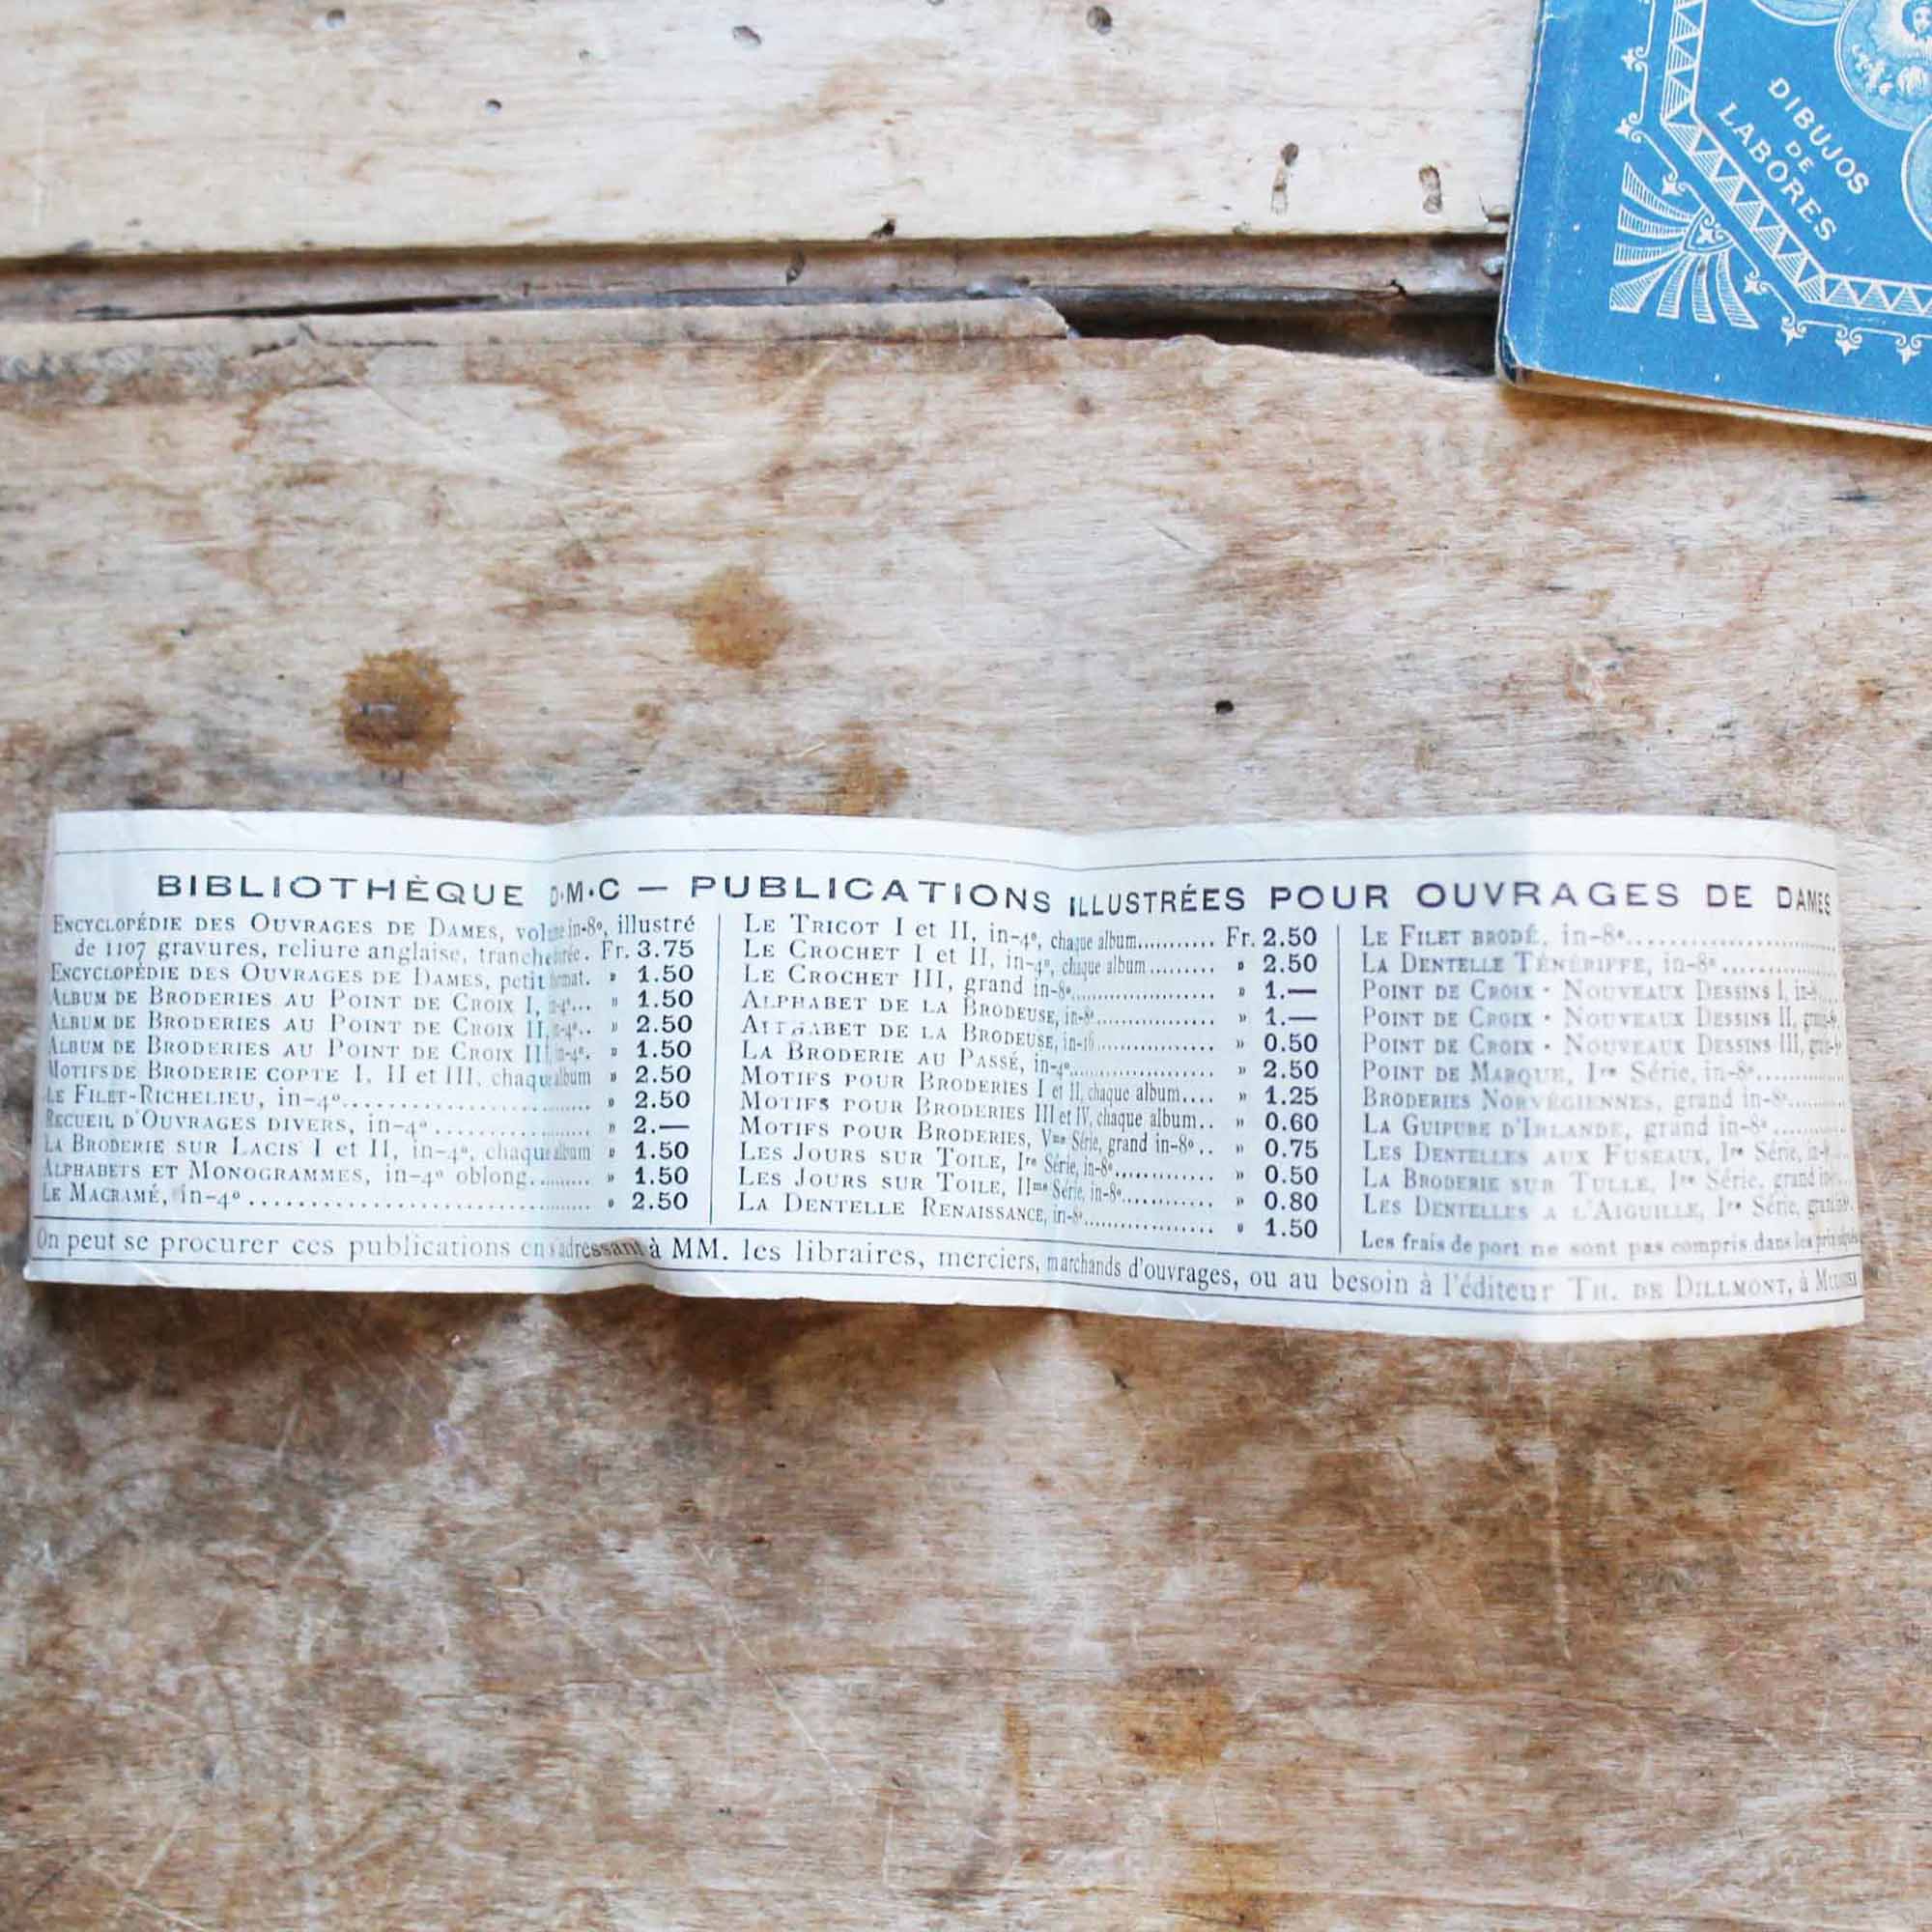 DIBUJOS
DE
LABORES
BIBLIOTHÈQUE D·M·C — PUBLICATIONS ILLUSTRÉES POUR OUVRAGES DE DAMES
ENCYCLOPÉDIE DES OUVRAGES DE DAMES, volume in-8º, illustré
de 1107 gravures, reliure anglaise, tranche dorée. Fr. 3.75
ENCYCLOPÉDIE DES OUVRAGES DE DAMES, petit format. » 1.50
ALBUM DE BRODERIES AU POINT DE CROIX I, in-4º... » 1.50
ALBUM DE BRODERIES AU POINT DE CROIX II, in-4º.. » 2.50
ALBUM DE BRODERIES AU POINT DE CROIX III, in-4º. » 1.50
MOTIFS DE BRODERIE COPTE I, II et III, chaque album » 2.50
LE FILET-RICHELIEU, in-4º.......... » 2.50
RECUEIL D'OUVRAGES DIVERS, in-4º.......... » 2.—
LA BRODERIE SUR LACIS I et II, in-4º, chaque album » 1.50
ALPHABETS ET MONOGRAMMES, in-4º oblong.......... » 1.50
LE MACRAMÉ, in-4º.......... » 2.50
LE TRICOT I et II, in-4º, chaque album.......... Fr. 2.50
LE CROCHET I et II, in-4º, chaque album......... » 2.50
LE CROCHET III, grand in-8º.......... » 1.—
ALPHABET DE LA BRODEUSE, in-8º.......... » 1.—
ALPHABET DE LA BRODEUSE, in-16.......... » 0.50
LA BRODERIE AU PASSÉ, in-4º.......... » 2.50
MOTIFS POUR BRODERIES I et II, chaque album.... » 1.25
MOTIFS POUR BRODERIES III et IV, chaque album.. » 0.60
MOTIFS POUR BRODERIES, Vme Série, grand in-8º.. » 0.75
LES JOURS SUR TOILE, Ire Série, in-8º.......... » 0.50
LES JOURS SUR TOILE, IIme Série, in-8º.......... » 0.80
LA DENTELLE RENAISSANCE, in-8º.......... » 1.50
LE FILET BRODÉ, in-8º..........
LA DENTELLE TÉNÉRIFFE, in-8º..........
POINT DE CROIX · NOUVEAUX DESSINS I, in-8....
POINT DE CROIX · NOUVEAUX DESSINS II,
POINT DE CROIX · NOUVEAUX DESSINS III,
POINT DE MARQUE, Ire Série, in-8º..........
BRODERIES NORVÉGIENNES, grand in-8º..........
LA GUIPURE D'IRLANDE, grand in-8º..........
LES DENTELLES AUX FUSEAUX, Ire Série, in-8...
LA BRODERIE SUR TULLE, Ire Série, grand in-8...
LES DENTELLES A L'AIGUILLE, Ire Série, grand in-8.
Les frais de port ne sont pas compris dans les prix
On peut se procurer ces publications en s'adressant à MM. les libraires, merciers, marchands d'ouvrages, ou au besoin à l'éditeur TH. DE DILLMONT, à